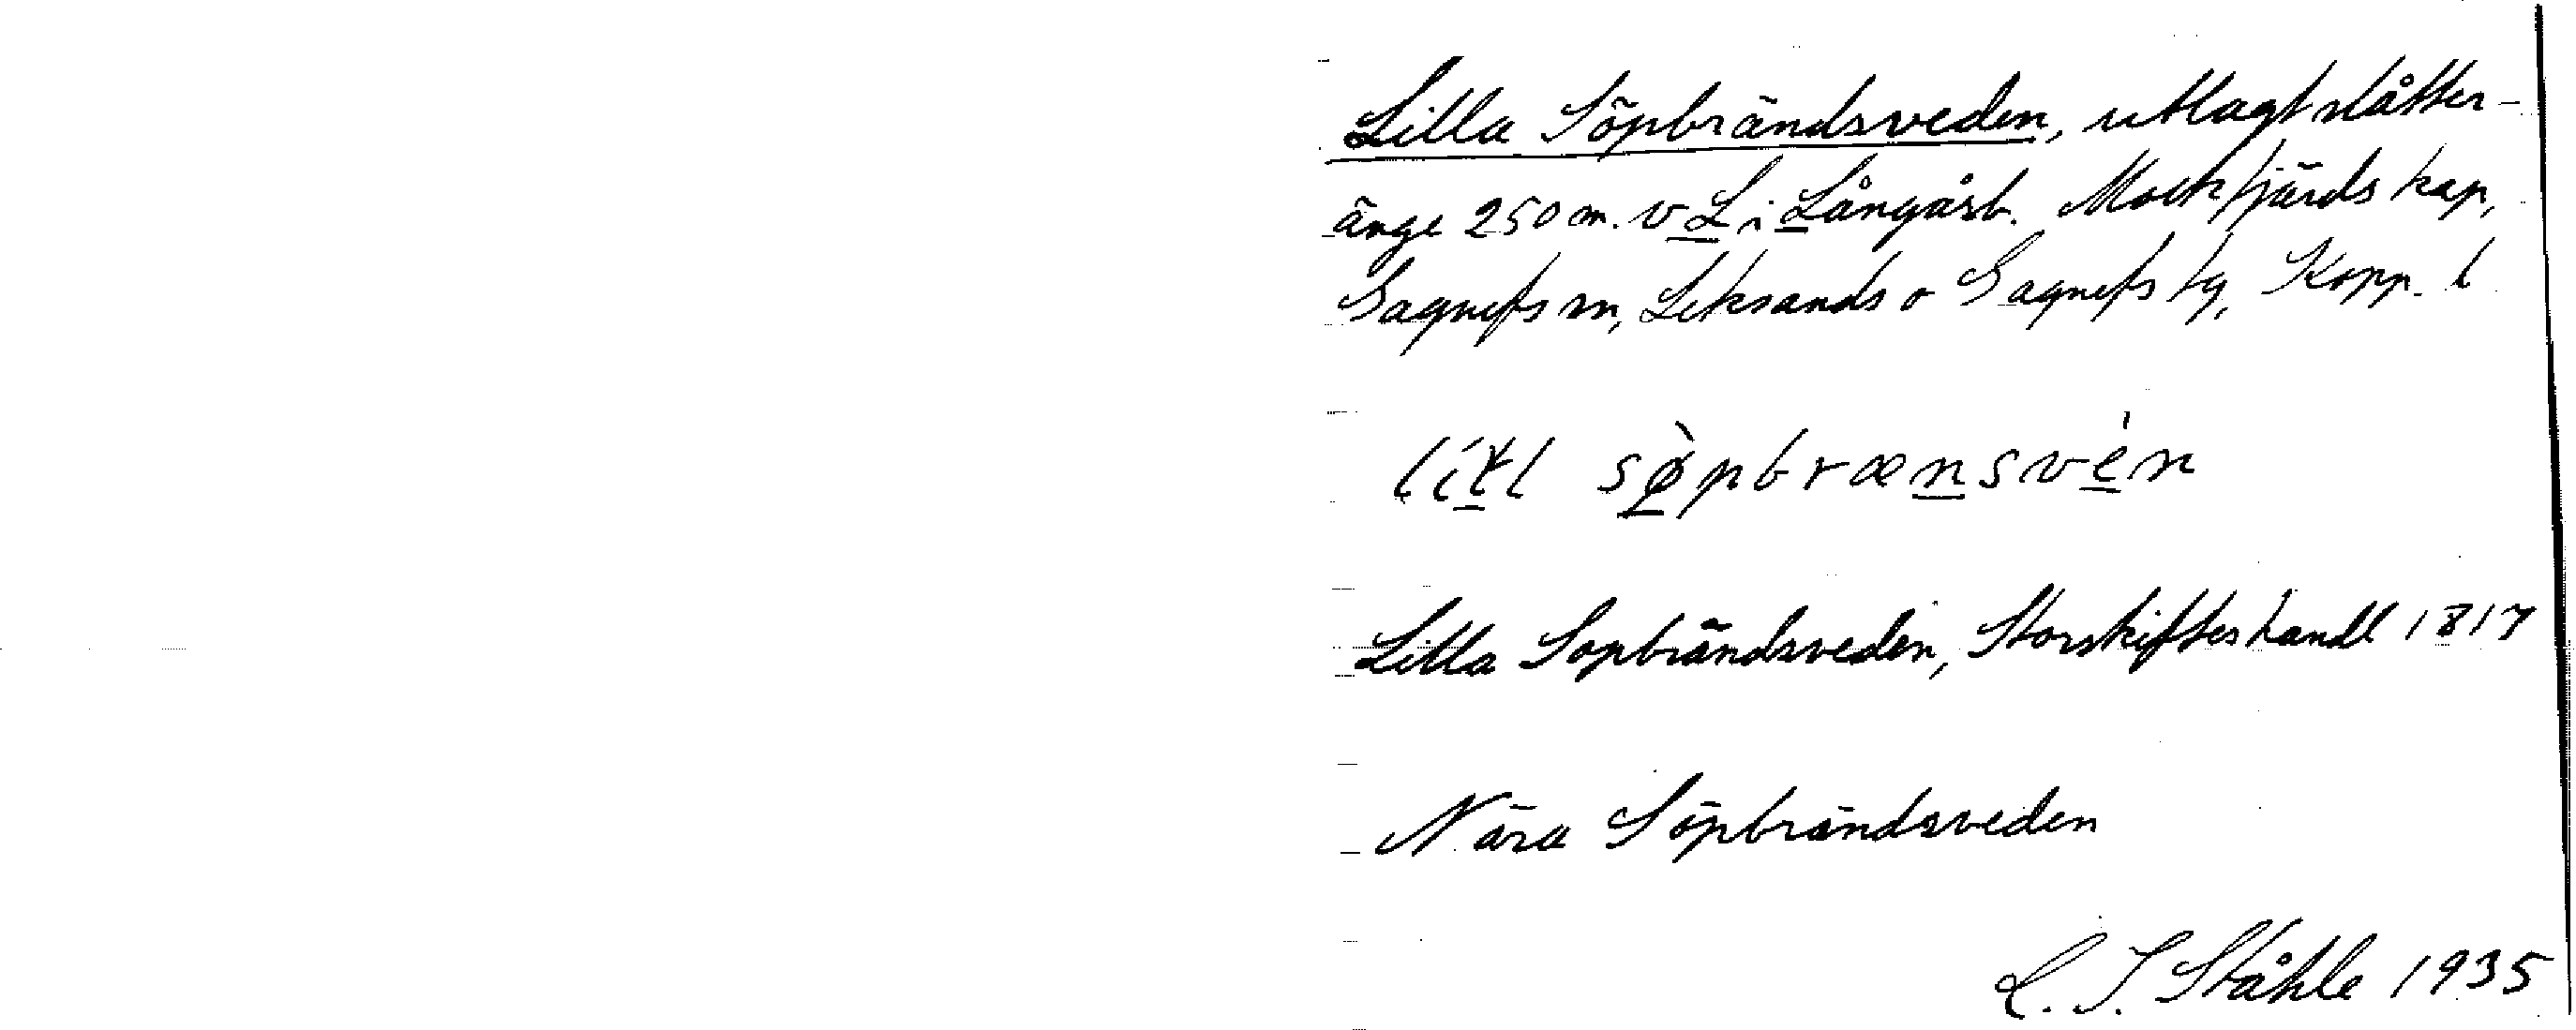 Lilla Söpbrändsveden, utlagt slåtter-
änge 250 m. v L i Långåsb. Mockfjärds kap,
Gagnefs sn, Leksands o Gagnefs tg, Kopp. l
söpbrænsvèn
Lilla Sopbrändsveden, Storskifteshandl 1817
Nära Söpbrändsveden
C. I. Ståhle 1935